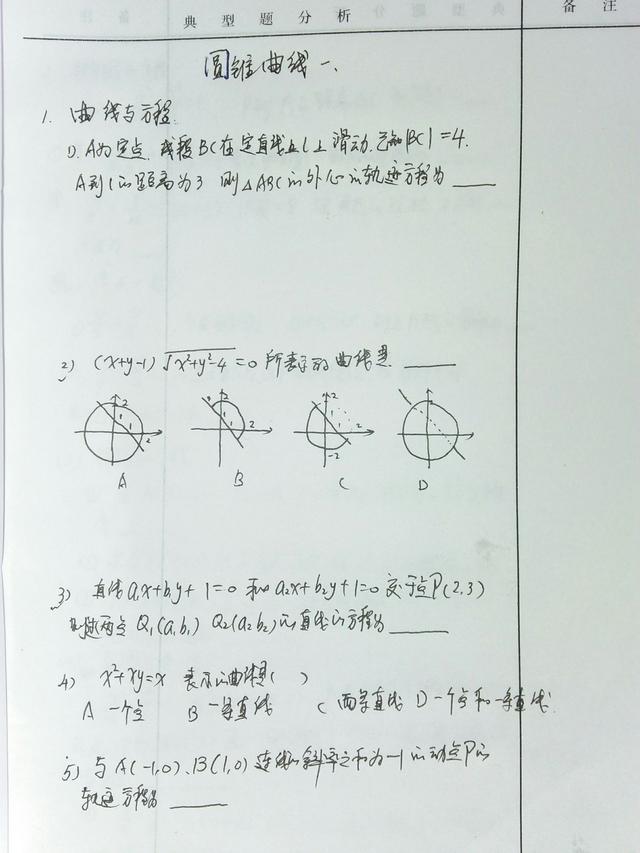 典型题分析 备注
圆锥曲线一、
1. 曲线与方程
1). A为定点, 线段BC在定直线l上滑动, 已知|BC|=4,
A到l的距离为3 则△ABC的外心的轨迹方程为____
2) (x+y-1)√x²+y²-4=0 所表示的曲线是____
2 1 1 2
A
2 1 1 2
B
2 1 1 2 -2
C
2
D
3) 直线a₁x+b₁y+1=0 和 a₂x+b₂y+1=0 交于点P(2,3)
则过两点 Q₁(a₁b₁) Q₂(a₂b₂)的直线的方程为____
4) x²+xy=x 表示的曲线是( )
A 一个点 B 一条直线 C 两条直线 D 一个点和一条直线
5) 与A(-1,0)、B(1,0)连线的斜率之和为-1的动点P的
轨迹方程为____